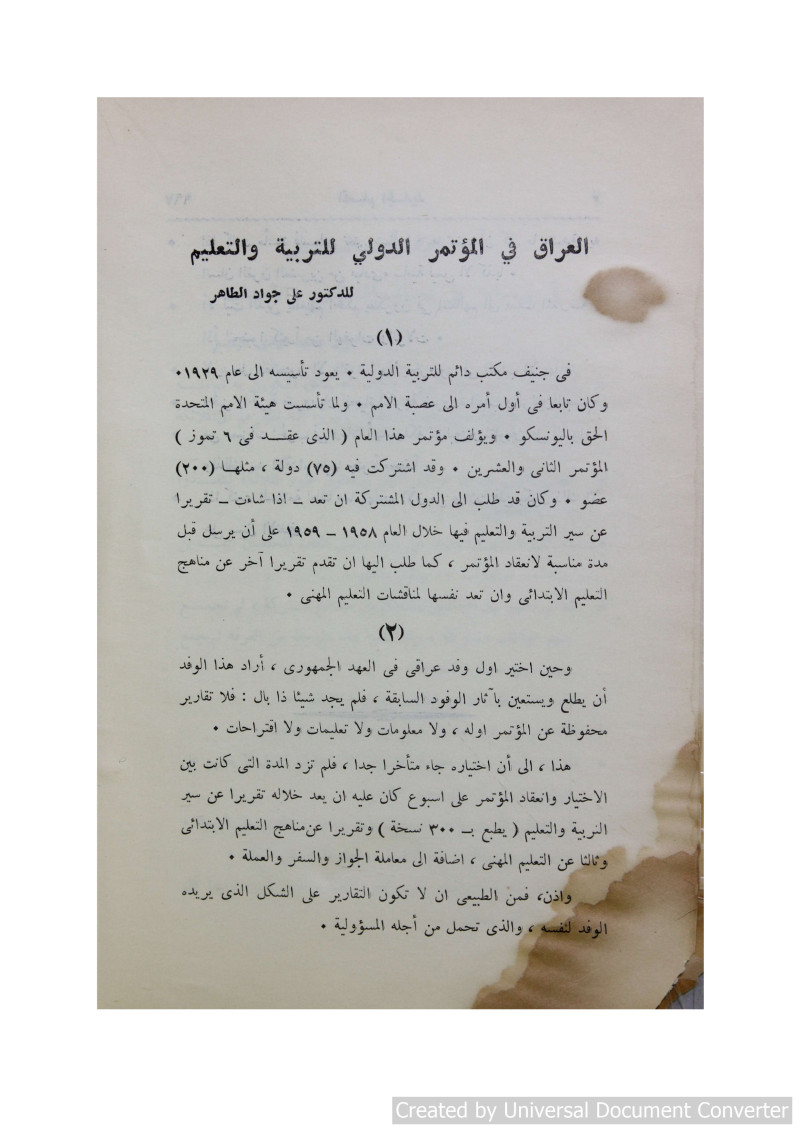 العراق في المؤتمر الدولي للتربية والتعليم
للدكتور على جواد الطاهر
(١)
فى جنيف مكتب دائم للتربية الدولية ٠ يعود تأسيسه الى عام ١٩٢٩٠
وكان تابعا فى أول أمره الى عصبة الامم ٠ ولما تأسست هيئة الامم المتحدة
الحق باليونسكو ٠ ويؤلف مؤتمر هذا العام ( الذى عقـــد فى ٦ تموز )
المؤتمر الثانى والعشرين ٠ وقد اشتركت فيه (٧٥) دولة ، مثلهـا (٢٠٠)
عضو ٠ وكان قد طلب الى الدول المشتركة ان تعد ــ اذا شاءت ــ تقريرا
عن سير التربية والتعليم فيها خلال العام ١٩٥٨ ــ ١٩٥٩ على أن يرسل قبل
مدة مناسبة لانعقاد المؤتمر ، كما طلب اليها ان تقدم تقريرا آخر عن مناهج
التعليم الابتدائى وان تعد نفسها لمناقشات التعليم المهنى ٠
(٢)
وحين اختير اول وفد عراقى فى العهد الجمهورى ، أراد هذا الوفد
أن يطلع ويستعين بآثار الوفود السابقة ، فلم يجد شيئا ذا بال : فلا تقارير
محفوظة عن المؤتمر اوله ، ولا معلومات ولا تعليمات ولا اقتراحات ٠
هذا ، الى أن اختياره جاء متأخرا جدا ، فلم تزد المدة التى كانت بين
الاختيار وانعقاد المؤتمر على اسبوع كان عليه ان يعد خلاله تقريرا عن سير
التربية والتعليم ( يطبع بــ ٣٠٠ نسخة ) وتقريرا عن مناهج التعليم الابتدائى
وثالثا عن التعليم المهنى ، اضافة الى معاملة الجواز والسفر والعملة ٠
واذن، فمن الطبيعى ان لا تكون التقارير على الشكل الذى يريده
الوفد لنفســه ، والذى تحمل من أجله المسؤولية ٠
Created by Universal Document Converter